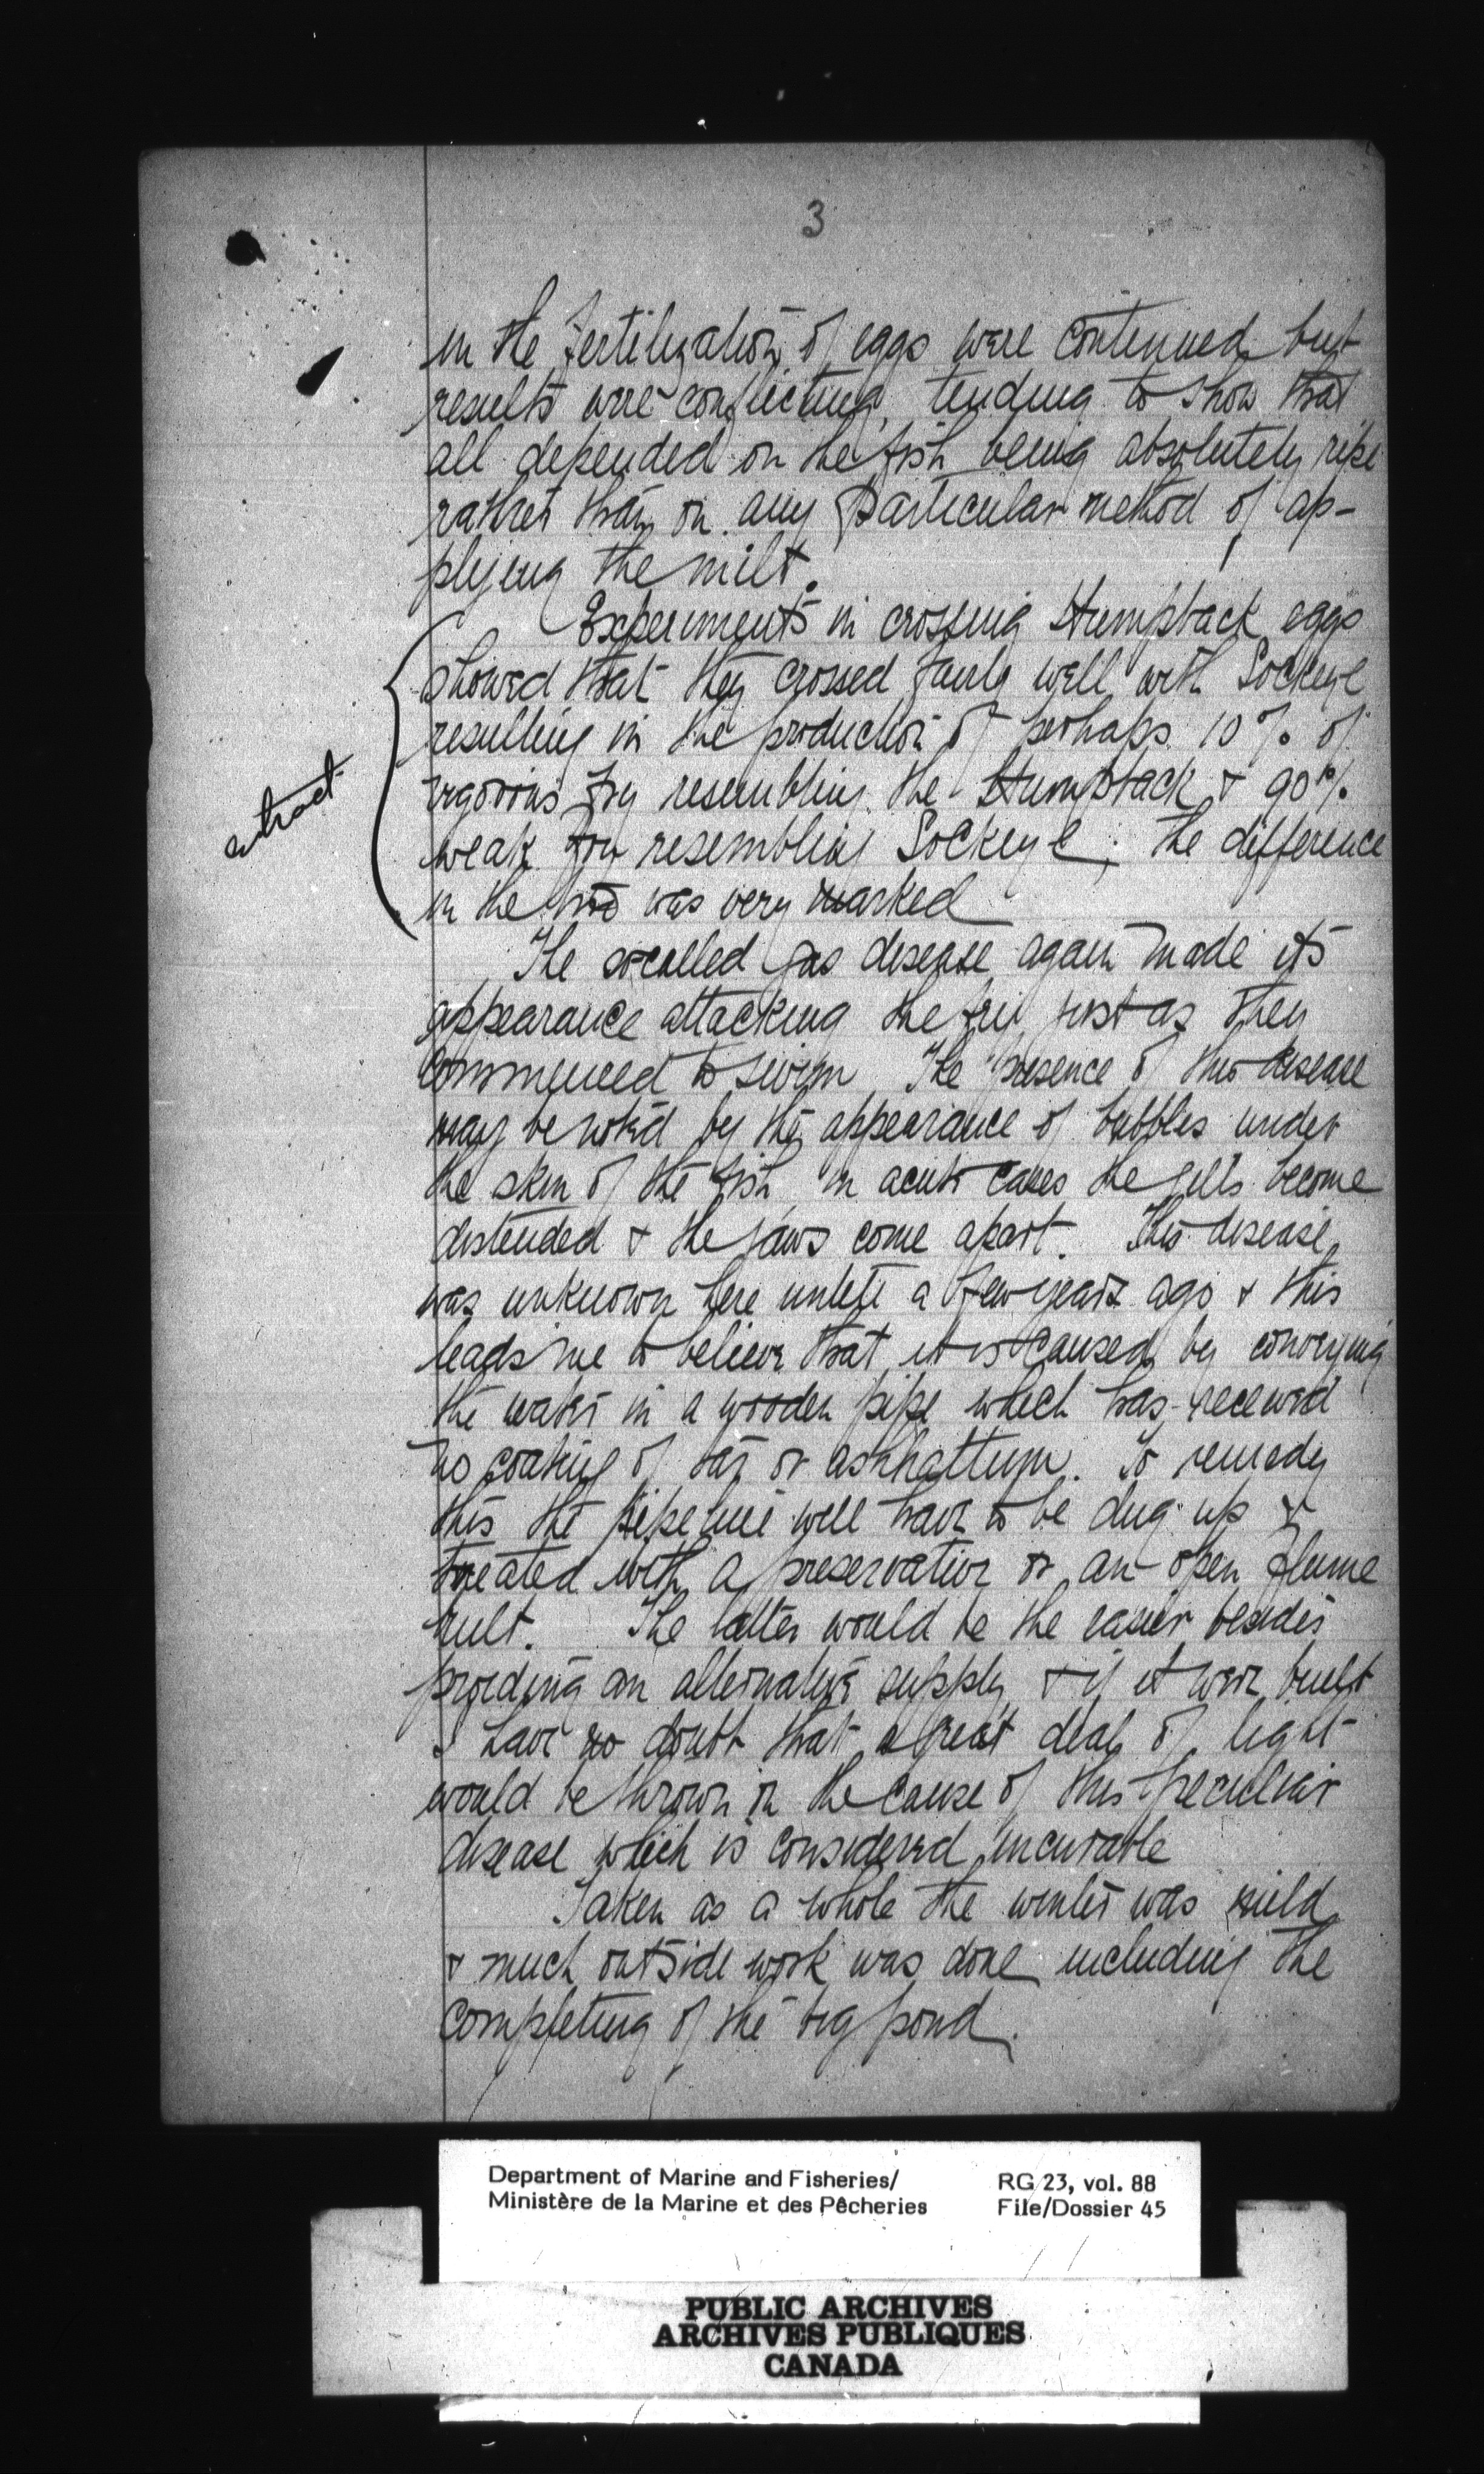 3
in the fertilization of eggs were continued but
results were conflicting, tending to show that
all depended on the fish being absolutely ripe
rather than on any particular method of ap-
plying the milt.
Experiments in crossing Humpback eggs
showed that they crossed fairly well with Sockeye
resulting in the production of perhaps 10% of
vigorous fry resembling the Humpback & 90%
weak fry resembling Sockeye; the difference
in the two was very marked
extract
The socalled gas disease again made its
appearance attacking the fry just as they
commenced to swim. The presence of this disease
may be noted by the appearance of bubbles under
the skin of the fish, in acute cases the gills become
distended & the jaws come apart. This disease
was unknown here until a few years ago & this
leads me to believe that it is caused by conveying
the water in a wooden pipe which has received
no coating of tar or asphaltum. To remedy
this the pipe line will have to be dug up &
treated with a preservative or an open flume
built. The latter would be the easier besides
providing an alternative supply & if it were built
I have no doubt that a great deal of light
would be thrown on the cause of this peculiar
disease which is considered incurable
Taken as a whole the winter was mild
& much outside work was done including the
completing of the big pond.
Department of Marine and Fisheries/
Ministère de la Marine et des Pêcheries
RG 23, vol. 88
File/Dossier 45
PUBLIC ARCHIVES
ARCHIVES PUBLIQUES
CANADA